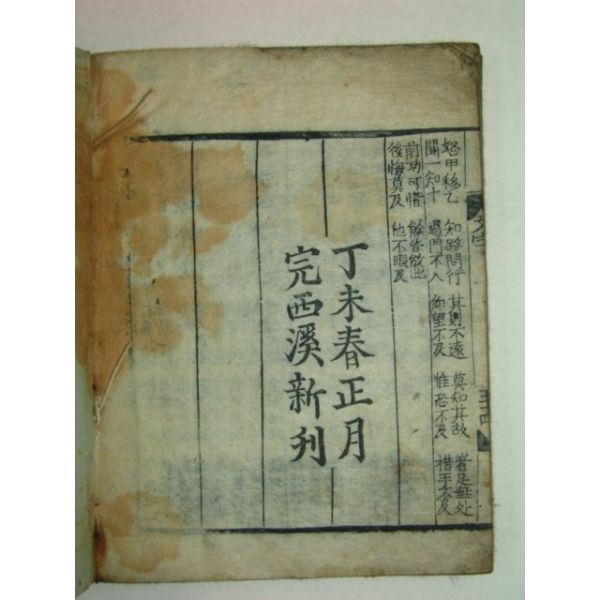 怒甲移乙 知路問行 其則不遠 莫知其故 著足無处
聞一知十 過門不入 仰望不及 惟恐不及 措手不及
前功可惜 餘皆倣出
後悔莫及 他不暇及
丁未春正月
完西溪新刋